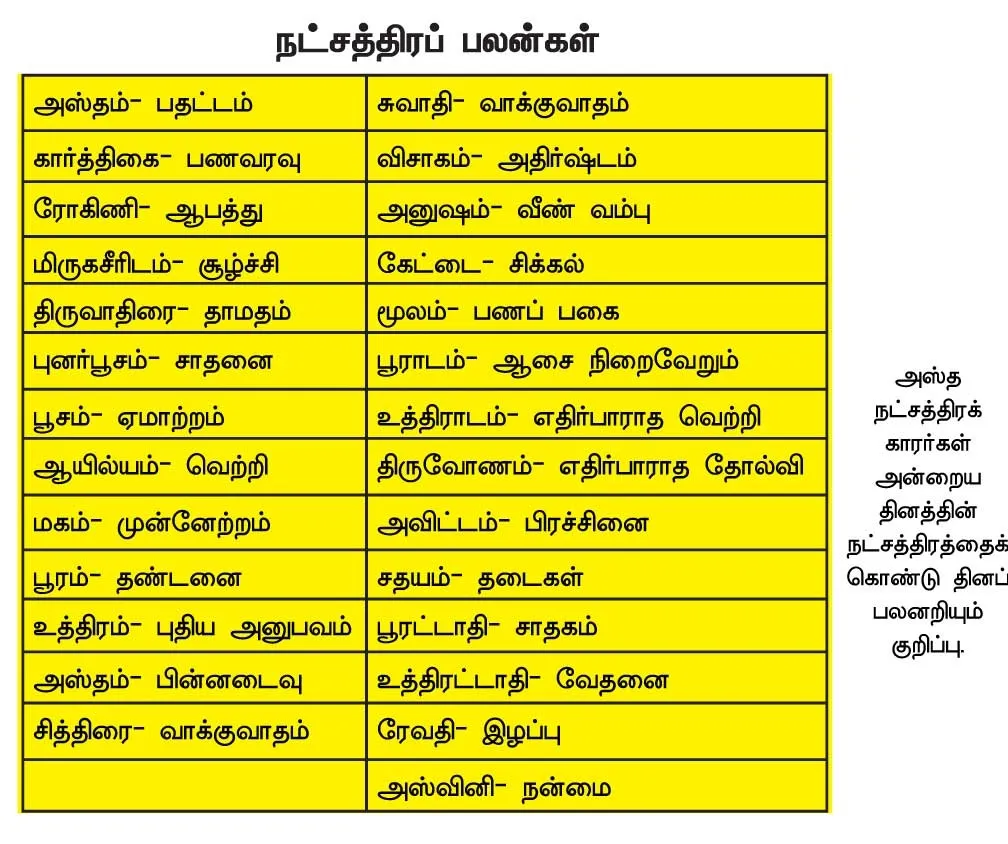 நட்சத்திரப் பலன்கள்
அஸ்தம்- பதட்டம்
சுவாதி- வாக்குவாதம்
கார்த்திகை- பணவரவு
விசாகம்- அதிர்ஷ்டம்
ரோகிணி- ஆபத்து
அனுஷம்- வீண் வம்பு
மிருகசீரிடம்- சூழ்ச்சி
கேட்டை- சிக்கல்
திருவாதிரை- தாமதம்
மூலம்- பணப் பகை
புனர்பூசம்- சாதனை
பூராடம்- ஆசை நிறைவேறும்
பூசம்- ஏமாற்றம்
உத்திராடம்- எதிர்பாராத வெற்றி
ஆயில்யம்- வெற்றி
திருவோணம்- எதிர்பாராத தோல்வி
மகம்- முன்னேற்றம்
அவிட்டம்- பிரச்சினை
பூரம்- தண்டனை
சதயம்- தடைகள்
உத்திரம்- புதிய அனுபவம்
பூரட்டாதி- சாதகம்
அஸ்தம்- பின்னடைவு
உத்திரட்டாதி- வேதனை
சித்திரை- வாக்குவாதம்
ரேவதி- இழப்பு
அஸ்வினி- நன்மை
அஸ்த
நட்சத்திரக்
காரர்கள்
அன்றைய
தினத்தின்
நட்சத்திரத்தைக்
கொண்டு தினப்
பலனறியும்
குறிப்பு.